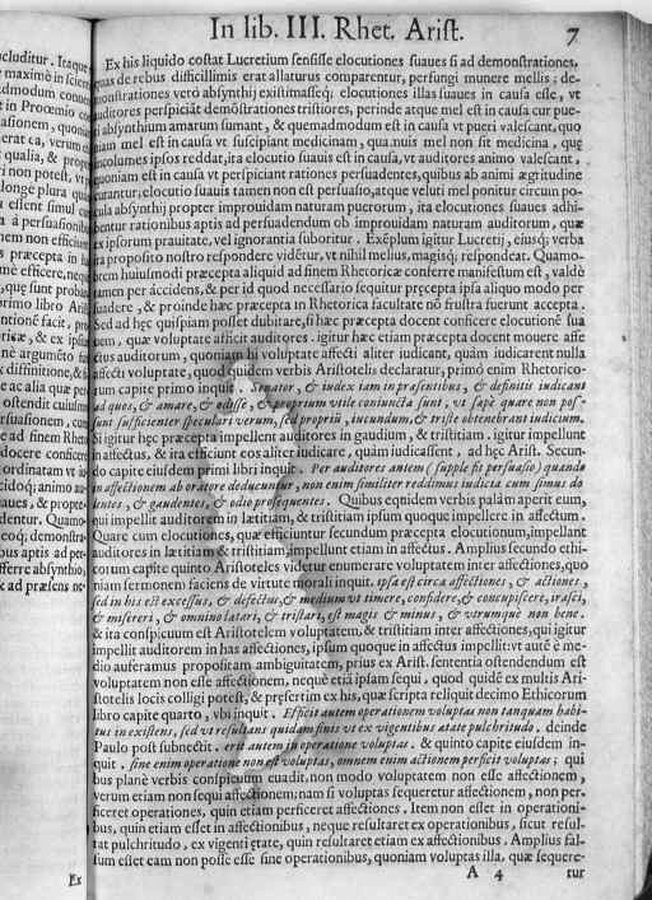 In lib. III. Rhet. Arist. 7
Ex his liquido cõstat Lucretium sensisse elocutiones suaues si ad demonstrationes,
quas de rebus difficillimis erat allaturus comparentur, perfungi munere mellis; de-
monstrationes verò absynthij existimasseq; elocutiones illas suaues in causa esse, vt
auditores perspiciãt demõstrationes tristiores, perinde atque mel est in causa cur pue-
ri absynthium amarum sumant, & quemadmodum est in causa vt pueri valescant, quo
niam mel est in causa vt suscipiant medicinam, quamuis mel non sit medicina, quę
incolumes ipsos reddat, ita elocutio suauis est in causa, vt auditores animo valescant,
quoniam est in causa vt perspiciant rationes persuadentes, quibus ab animi ægritudine
curantur; elocutio suauis tamen non est persuasio, atque veluti mel ponitur circum po-
cula absynthij propter improuidam naturam puerorum, ita elocutiones suaues adhi-
bentur rationibus aptis ad persuadendum ob improuidam naturam auditorum, quæ
ex ipsorum prauitate, vel ignorantia suboritur. Exẽplum igitur Lucretij, eiusq; verba
ita proposito nostro respondere vidẽtur, vt nihil melius, magisq; respondeat. Quamo-
brem huiusmodi præcepta aliquid ad finem Rhetoricæ conferre manifestum est, valdè
tamen per áccidens, & per id quod necessario sequitur pręcepta ipsa aliquo modo per
suadere, & proinde hæc præcepta in Rhetorica facultate nõ frustra fuerunt accepta.
Sed ad hęc quispiam posset dubitare, si hæc præcepta docent conficere elocutionẽ sua
uem, quæ voluptate afficit auditores. igitur hæc etiam præcepta docent mouere affe
ctus auditorum, quoniam hi voluptate affecti aliter iudicant, quàm iudicarent nulla
affecti voluptate, quod quidem verbis Aristotelis declaratur, primò enim Rhetorico-
rum capite primo inquit. Senator, & iudex iam in præsentibus, & definitis iudicant
ad quos, & amare, & odisse, & proprium vtile coniuncta sunt, vt sæpè quare non pos-
sunt sufficienter speculari verum, sed propriũ, iucundum, & triste obtenebrant iudicium.
Si igitur hęc præcepta impellent auditores in gaudium, & tristitiam. igitur impellent
in affectus, & ita efficiunt eos aliter iudicare, quàm iudicassent, ad hęc Arist. Secun-
do capite eiusdem primi libri inquit. Per auditores autem (supple fit persuasio) quando
in affectionem ab oratore deducuntur, non enim similiter reddimus iudicia cum simus do
lentes, & gaudentes, & odio prosequentes. Quibus equidem verbis palàm aperit eum,
qui impellit auditorem in lætitiam, & tristitiam ipsum quoque impellere in affectum.
Quare cum elocutiones, quæ efficiuntur secundum præcepta elocutionum, impellant
auditores in lætitiam & tristitiam, impellunt etiam in affectus. Amplius secundo ethi-
corum capite quinto Aristoteles videtur enumerare voluptatem inter affectiones, quo
niam sermonem faciens de virtute morali inquit. ipsa est circa affectiones, & actiones,
sed in his est excessus, & defectus, & medium vt timere, confidere, & concupiscere, irasci,
& misereri, & omnino lætari, & tristari, est magis & minus, & vtrumque non bene.
& ita conspicuum est Aristotelem voluptatem, & tristitiam inter affectiones, qui igitur
impellit auditorem in has affectiones, ipsum quoque in affectus impellit: vt autẽ è me-
dio auferamus propositam ambiguitatem, prius ex Arist. sententia ostendendum est
voluptatem non esse affectionem, nequè etiã ipsam sequi, quod quidẽ ex multis Ari-
stotelis locis colligi potest, & pręsertim ex his, quæ scripta reliquit decimo Ethicorum
libro capite quarto, vbi inquit. Efficit autem operationem voluptas non tanquam habi-
tus in existens, sed vt resultans quidam finis vt ex vigentibus ætate pulchritudo. deinde
Paulo post subnectit. erit autem in operatione voluptas. & quinto capite eiusdem in-
quit. sine enim operatione non est voluptas, omnem enim actionem perficit voluptas; qui
bus planè verbis conspicuum euadit, non modo voluptatem non esse affectionem,
verum etiam non sequi affectionem; nam si voluptas sequeretur affectionem, non per-
ficeret operationes, quin etiam perficeret affectiones. Item non esset in operationi-
bus, quin etiam esset in affectionibus, neque resultaret ex operationibus, sicut resul-
tat pulchritudo, ex vigenti ętate, quin resultaret etiam ex affectionibus. Amplius fal-
sum esset eam non posse esse sine operationibus, quoniam voluptas illa, quæ sequere-
A 4 tur
Ex